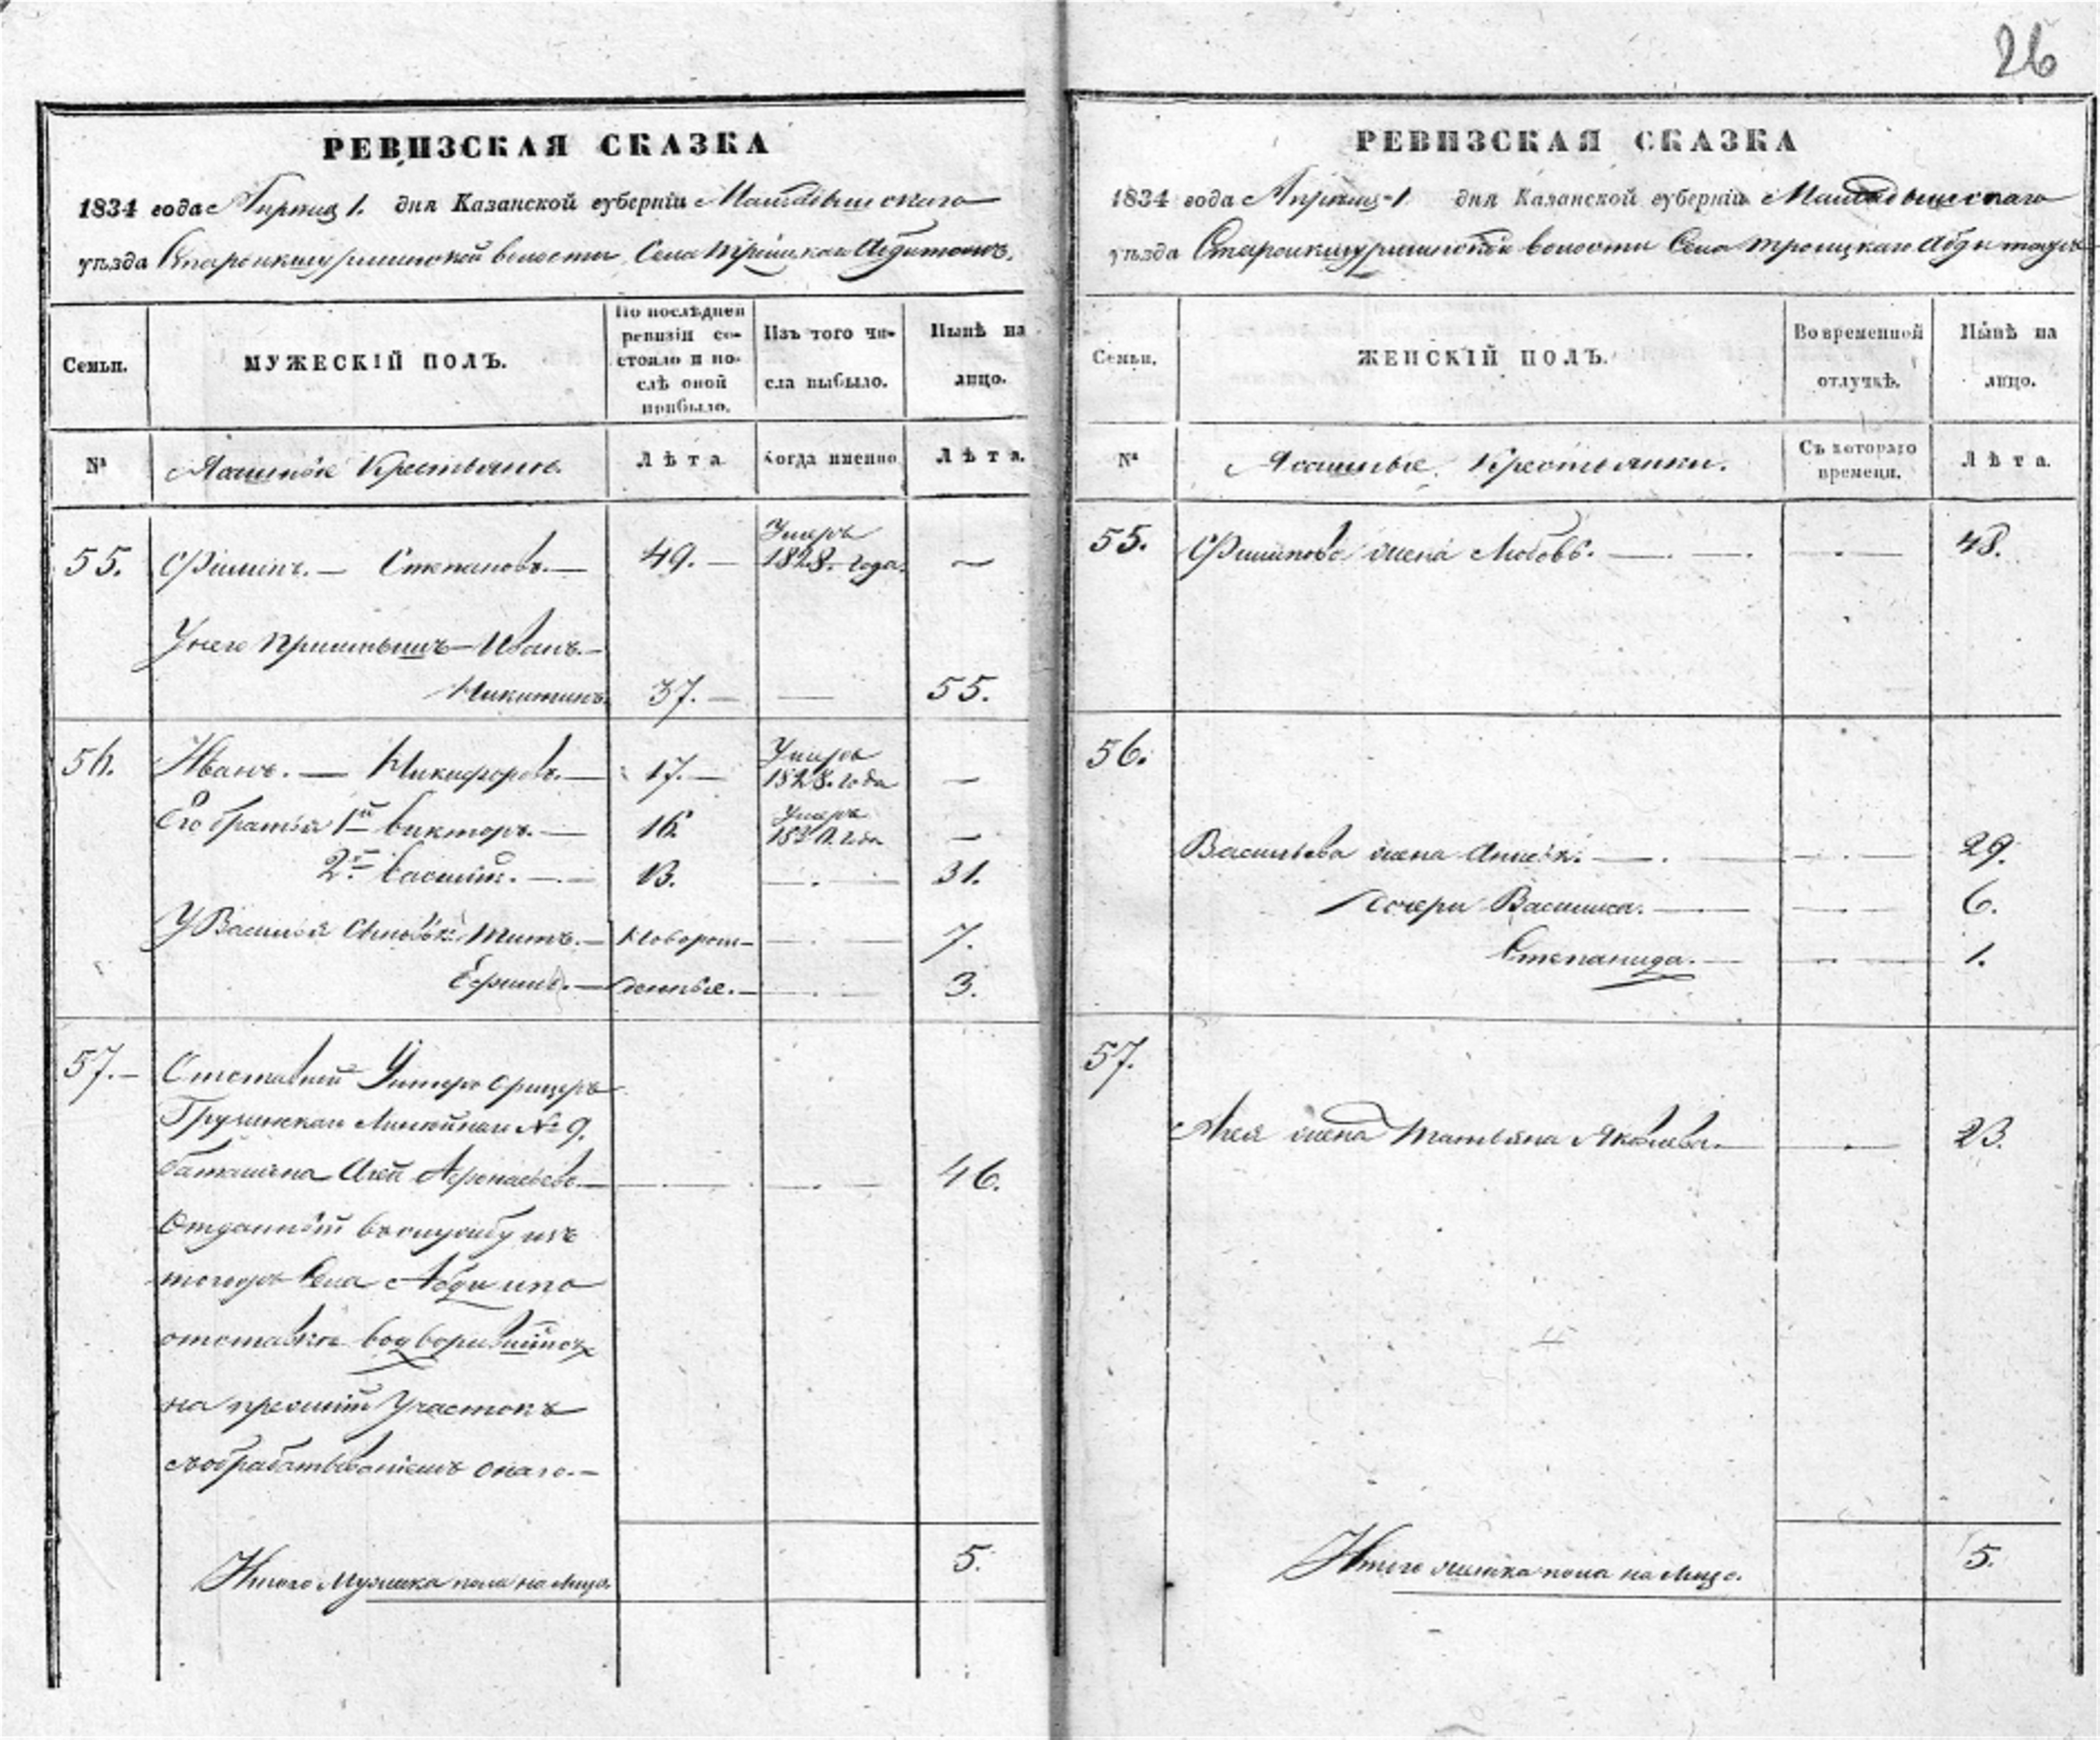 26
РЕВИЗСКАЯ СКАЗКА
1834 года Апреля 1. дня Казанской губерніи Мамадышскаго
уѣзда Старокишуриминской волости, Села Троицкаго Абди тожъ.
Семьи.
МУЖЕСКІЙ ПОЛЪ.
По послѣдней
ревизіи со-
стояло и по-
слѣ оной
прибыло.
Изъ того чи-
сла выбыло.
Нынѣ на
лицо.
№
Ясашные Крестьяне.
Лѣта
Когда именно
Лѣта.
55. Филипъ. — Степановъ. — 49. — Умеръ 1828. года. —
У него приимышъ — Иванъ. —
Никитинъ. 37. — — 55.
56. Иванъ. — Никифоровъ. — 17. — Умеръ 1828. года —
Его братья 1й Викторъ. — 16. Умеръ —
2й Василій. — 13. — 31.
У Василья Сыновья: Титъ. — Новорож- — 7.
Ефимъ. — денные. — — 3.
57. — Отставной Унтеръ офицеръ
Грузинскаго Линейнаго № 9.
баталіона Агей Афонасьевъ — — — 46.
Отданный въ службу изъ
тогожъ Села Абди и по
отставкѣ водворившійся
на прежній Участокъ
съ обрабатываніемъ онаго. —
Итого Мужеска пола на Лицо. 5.
РЕВИЗСКАЯ СКАЗКА
1834 года Апреля 1 дня Казанской губерніи Мамадышскаго
уѣзда Старокишуриминской волости Села Троицкаго Абди тожъ
Семьи.
ЖЕНСКІЙ ПОЛЪ.
Во временной
отлучкѣ.
Нынѣ на
лицо.
№
Ясашные Крестьянки.
Съ котораго
времени.
Лѣта.
55. Филипова жена Любовь. — — — 48.
56.
Васильева жена — — 29.
Дочери Василиса. — — 6.
Степанида. — — 1.
57.
Агея жена Татьяна Яковлева. — — 23.
Итого женска пола на Лицо. 5.